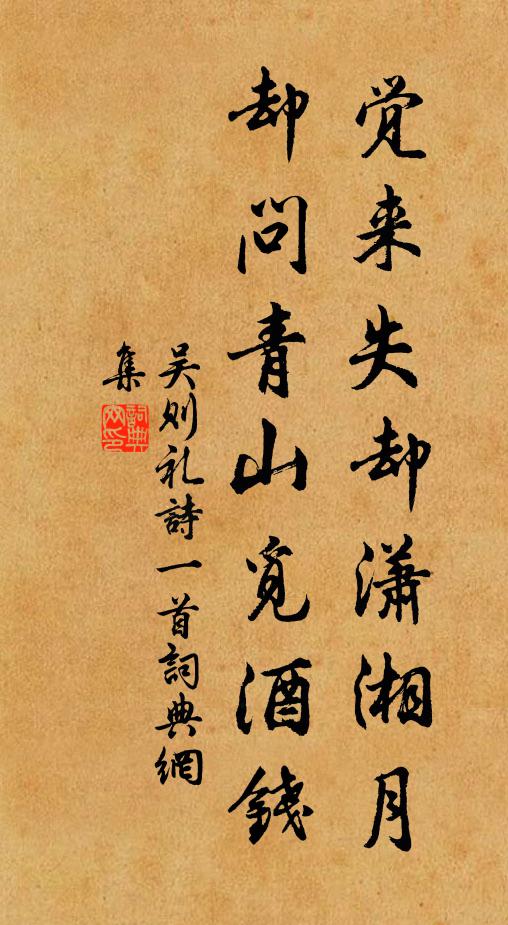 觉来失却潇湘月
却问青山觅酒钱
吴则礼詩一首詞典網
集
詞典网印